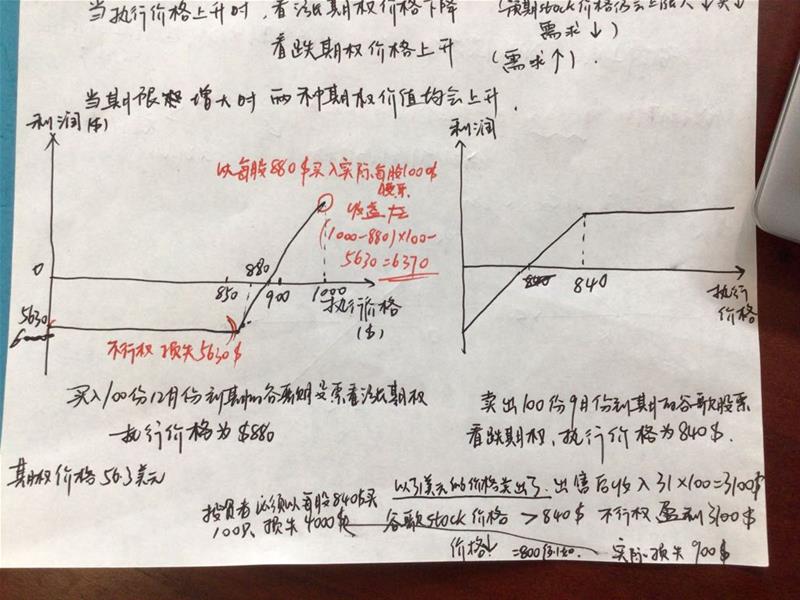 当执行价格上升时,看涨期权价格下降 (预期stock价格
需求↓)
看跌期权价格上升 (需求↑).
当期限 增大时 两种期权价值均会上升.
利润($)
以每股880$买入实际每股1000$
股票
收益 为
(1000-880)×100-
5630=6370
0
850
880
900
1000
执行价格
($)
5630
不行权 损失5630$
利润
840
执行
价格
买入100份12月份到期的谷歌 股票看涨期权
执行价格为$880
期权价格56.3美元
卖出100份9月份到期的谷歌股票
看跌期权,执行价格为840$.
以31美元的价格卖出了.出售后收入31×100=3100$
谷歌stock价格 >840$ 不行权 盈利3100$
价格↓ =800 实际损失900$
投资者必须以每股840$买
100只,损失4000$